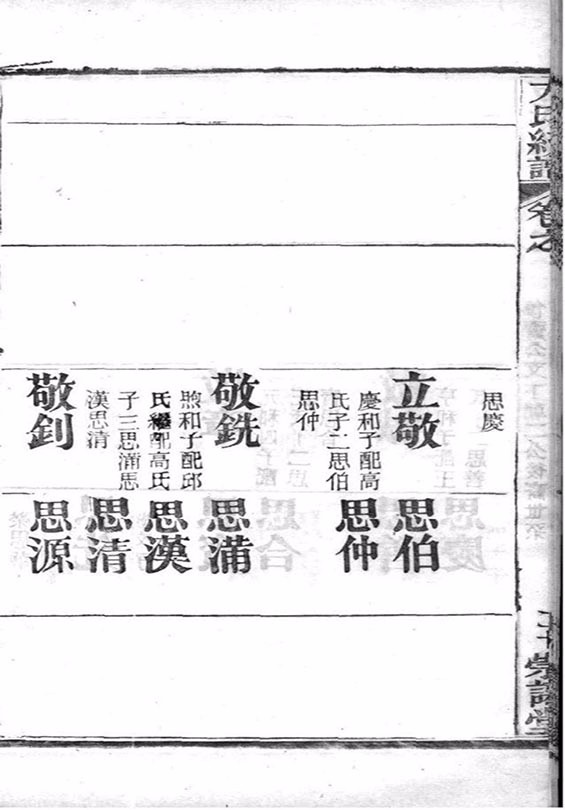 卷之
思慶
立敬
慶和子配高
氏子二思伯
思仲
敬銑
煦和子配邱
氏繼配高氏
子三思滿思
漢思清
敬釗
思伯
思仲
思滿
思漢
思清
思源